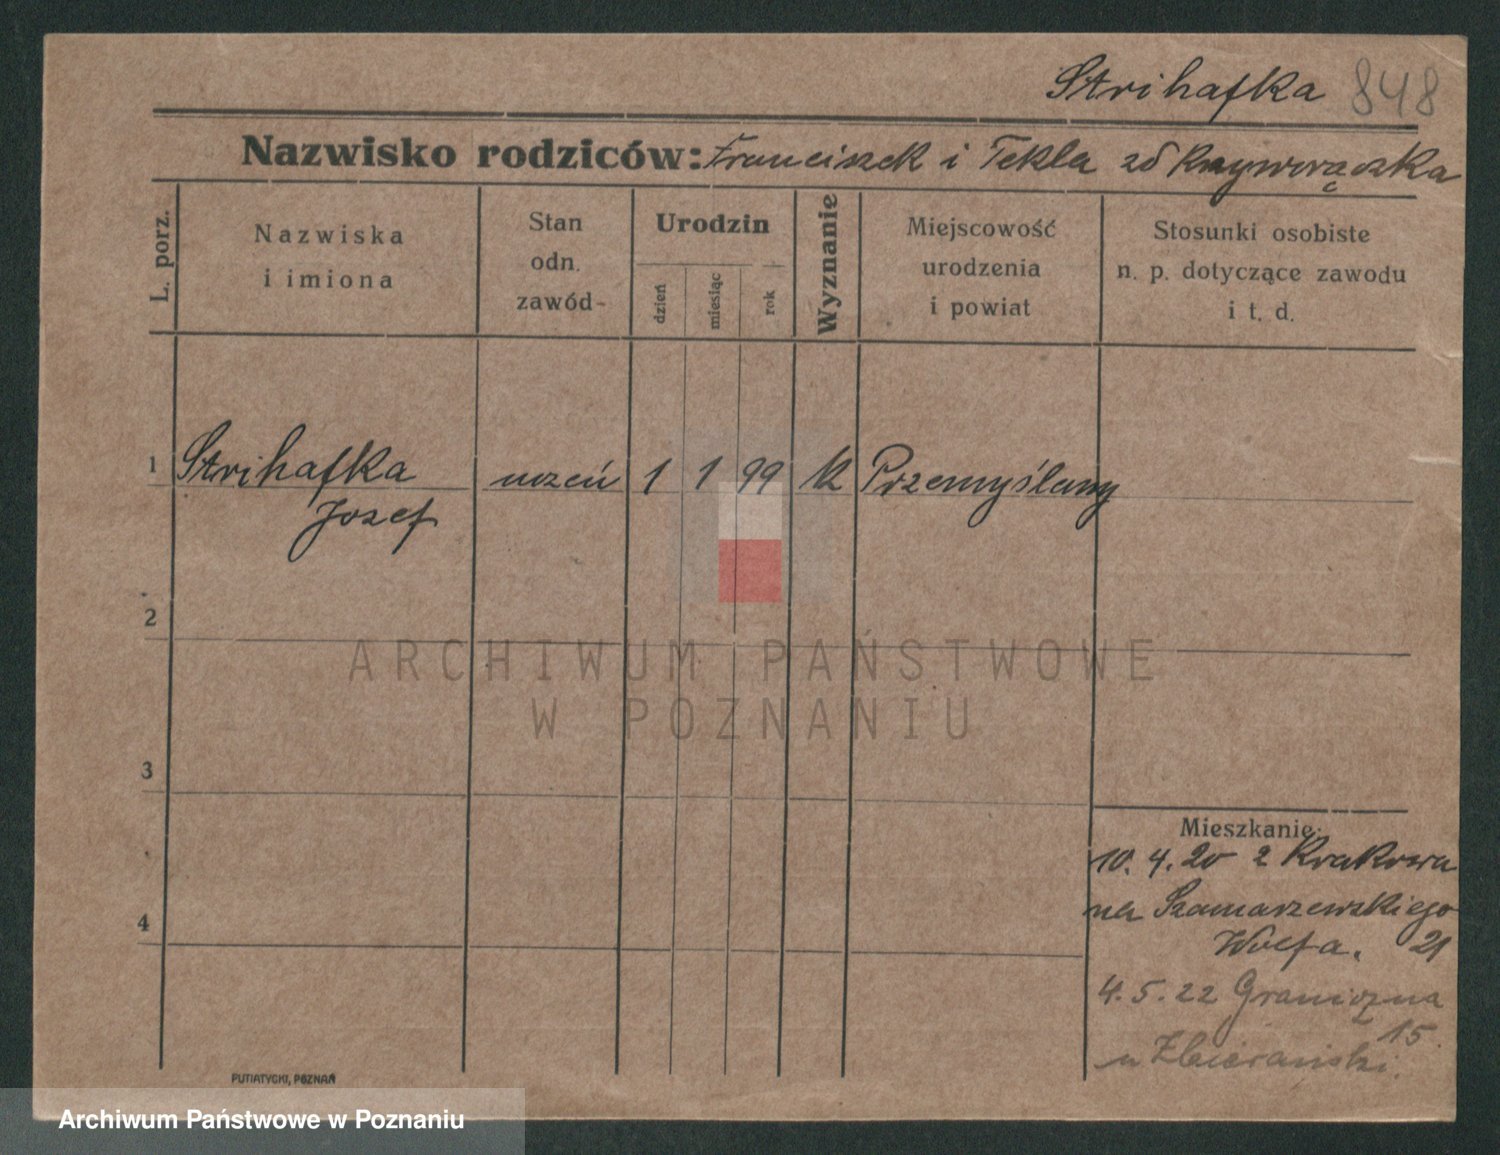 Strihafka 848
Nazwisko rodziców: Franciszek i Tekla zd Krzyworączka
L. porz.
Nazwiska
i imiona
Stan
odn.
zawód-
Urodzin
dzień
miesiąc
rok
Wyznanie
Miejscowość
urodzenia
i powiat
Stosunki osobiste
n. p. dotyczące zawodu
i t. d.
1 Strihafka uczeń 1 1 99 k Przemyślany
Jozef
2
3
4
Mieszkanie:
10. 4. 20 z Krakowa
na Szamarzewskiego
Wolfa. 21
4. 5. 22 Graniczna
15.
u
PUTIATYCKI, POZNAŃ
ARCHIWUM PAŃSTWOWE
W POZNANIU
Archiwum Państwowe w Poznaniu